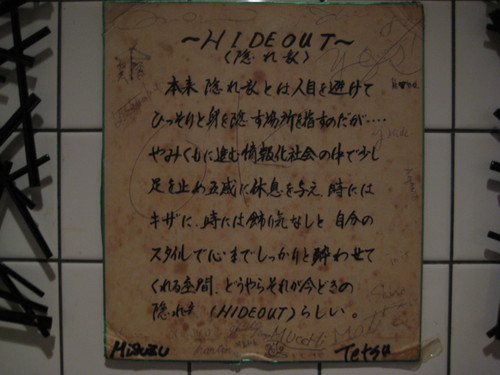 ～HIDEOUT～
(隠れ家)
本来 隠れ家とは人目を避けて
ひっそりと身を隠す場所を指すのだが‥‥
やみくもに進む情報化社会の中で少し
足を止め五感に休息を与え、時には
キザに、時には飾り気なしと 自分の
スタイルで心までしっかりと酔わせて
くれる空間、どうやらそれが今どきの
隠れ家 (HIDEOUT)らしい。
Misuzu
Tetsu